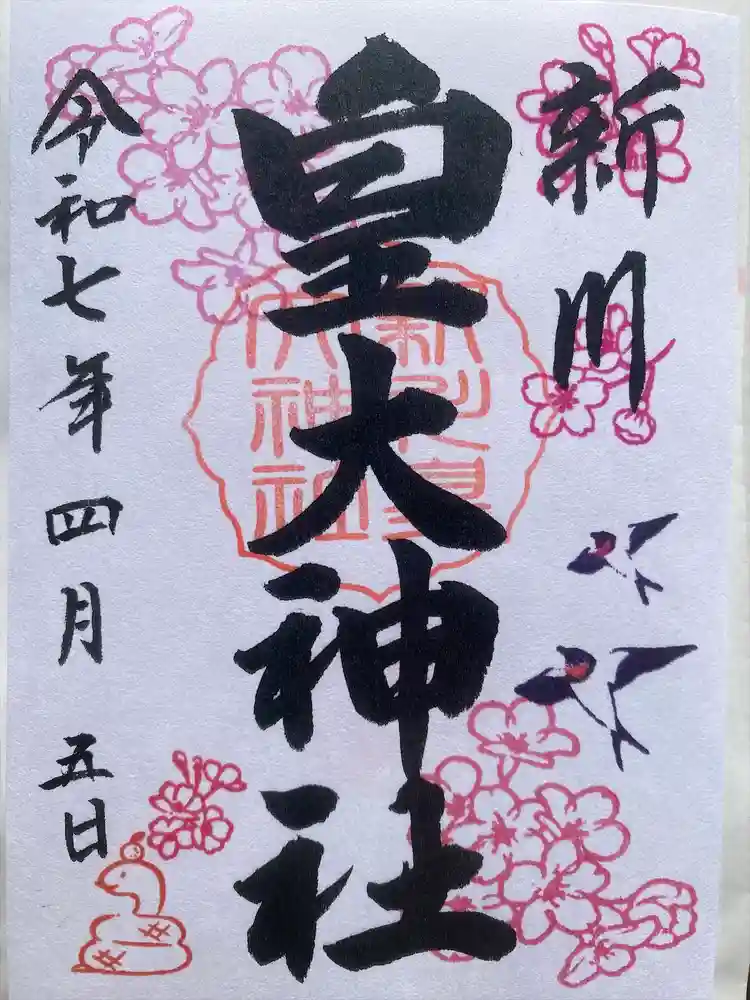 新川
皇大神社
新川皇
大神社
令和七年四月五日